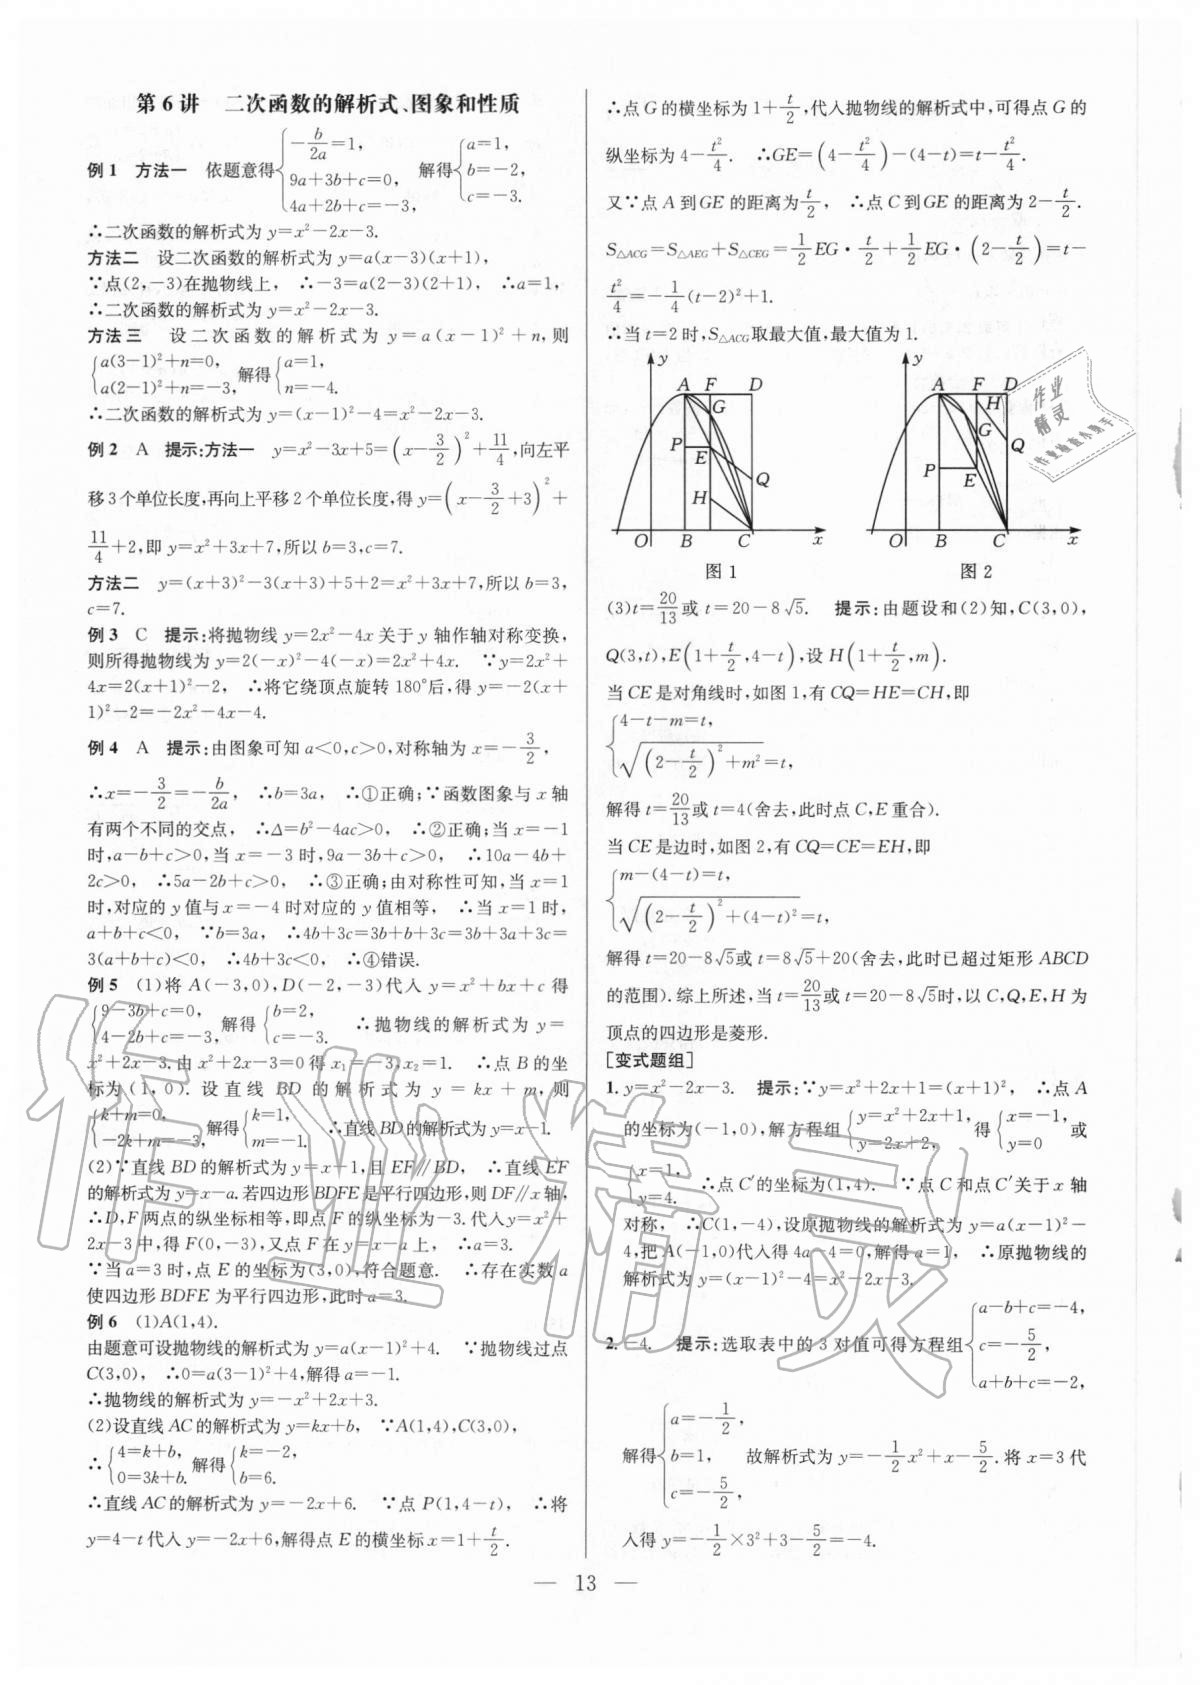 第6讲 二次函数的解析式、图象和性质
例1 方法一 依题意得{-b/2a=1, 9a+3b+c=0, 4a+2b+c=-3, 解得{a=1, b=-2, c=-3.
∴二次函数的解析式为 y=x²-2x-3.
方法二 设二次函数的解析式为 y=a(x-3)(x+1),
∵点(2,-3)在抛物线上, ∴-3=a(2-3)(2+1), ∴a=1,
∴二次函数的解析式为 y=x²-2x-3.
方法三 设二次函数的解析式为 y=a(x-1)²+n,则
{a(3-1)²+n=0, a(2-1)²+n=-3, 解得{a=1, n=-4.
∴二次函数的解析式为 y=(x-1)²-4=x²-2x-3.
例2 A 提示:方法一 y=x²-3x+5=(x-3/2)²+11/4,向左平
移3个单位长度,再向上平移2个单位长度,得 y=(x-3/2+3)²+
11/4+2,即 y=x²+3x+7,所以 b=3,c=7.
方法二 y=(x+3)²-3(x+3)+5+2=x²+3x+7,所以 b=3,
c=7.
例3 C 提示:将抛物线 y=2x²-4x 关于 y 轴作轴对称变换,
则所得抛物线为 y=2(-x)²-4(-x)=2x²+4x. ∵y=2x²+
4x=2(x+1)²-2, ∴将它绕顶点旋转180°后,得 y=-2(x+
1)²-2=-2x²-4x-4.
例4 A 提示:由图象可知 a<0,c>0,对称轴为 x=-3/2,
∴x=-3/2=-b/2a, ∴b=3a, ∴①正确;∵函数图象与 x 轴
有两个不同的交点, ∴Δ=b²-4ac>0, ∴②正确;当 x=-1
时,a-b+c>0,当 x=-3 时,9a-3b+c>0, ∴10a-4b+
2c>0, ∴5a-2b+c>0, ∴③正确;由对称性可知,当 x=1
时,对应的 y 值与 x=-4 时对应的 y 值相等, ∴当 x=1时,
a+b+c<0, ∵b=3a, ∴4b+3c=3b+b+3c=3b+3a+3c=
3(a+b+c)<0, ∴4b+3c<0, ∴④错误.
例5 (1)将 A(-3,0),D(-2,-3)代入 y=x²+bx+c 得
{9-3b+c=0, 4-2b+c=-3, 解得{b=2, c=-3. ∴抛物线的解析式为 y=
x²+2x-3.由 x²+2x-3=0 得 x₁=-3,x₂=1. ∴点 B 的坐
标为(1,0). 设直线 BD 的解析式为 y=kx+m,则
{k+m=0, -2k+m=-3, 解得{k=1, m=-1. ∴直线BD的解析式为y=x-1.
(2)∵直线 BD 的解析式为 y=x+1,且 EF∥BD, ∴直线 EF
的解析式为 y=x-a.若四边形 BDFE 是平行四边形,则 DF∥x 轴,
∴D,F 两点的纵坐标相等,即点 F 的纵坐标为-3.代入y=x²+
2x-3中,得 F(0,-3),又点 F 在 y=x-a 上, ∴a=3.
∵当 a=3 时,点 E 的坐标为(3,0),符合题意. ∴存在实数 a
使四边形 BDFE 为平行四边形,此时 a=3.
例6 (1)A(1,4).
由题意可设抛物线的解析式为 y=a(x-1)²+4. ∵抛物线过点
C(3,0), ∴0=a(3-1)²+4,解得 a=-1.
∴抛物线的解析式为 y=-x²+2x+3.
(2)设直线 AC 的解析式为 y=kx+b, ∵A(1,4),C(3,0),
∴{4=k+b, 0=3k+b. 解得{k=-2, b=6.
∴直线 AC 的解析式为 y=-2x+6. ∵点 P(1,4-t), ∴将
y=4-t 代入 y=-2x+6,解得点 E 的横坐标 x=1+t/2.
∴点 G 的横坐标为 1+t/2,代入抛物线的解析式中,可得点 G 的
纵坐标为 4-t²/4. ∴GE=(4-t²/4)-(4-t)=t-t²/4.
又∵点 A 到 GE 的距离为 t/2, ∴点 C 到 GE 的距离为 2-t/2.
S△ACG=S△AEG+S△CEG=1/2EG·t/2+1/2EG·(2-t/2)=t-
t²/4=-1/4(t-2)²+1.
∴当 t=2 时,S△ACG取最大值,最大值为 1.
y A F D G P E Q H O B C x
图1
y A F D H G Q P E O B C x
图2
(3)t=20/13或 t=20-8√5. 提示:由题设和(2)知,C(3,0),
Q(3,t),E(1+t/2,4-t),设 H(1+t/2,m).
当 CE 是对角线时,如图1,有 CQ=HE=CH,即
{4-t-m=t, √((2-t/2)²+m²)=t,
解得 t=20/13或 t=4(舍去,此时点 C,E 重合).
当 CE 是边时,如图2,有 CQ=CE=EH,即
{m-(4-t)=t, √((2-t/2)²+(4-t)²)=t,
解得 t=20-8√5或 t=8√5+20(舍去,此时已超过矩形 ABCD
的范围).综上所述,当 t=20/13或 t=20-8√5时,以 C,Q,E,H 为
顶点的四边形是菱形.
[变式题组]
1. y=x²-2x-3. 提示:∵y=x²+2x+1=(x+1)², ∴点 A
的坐标为(-1,0),解方程组{y=x²+2x+1, y=2x+2, 得{x=-1, y=0 或
{x=1, y=4. ∴点 C′的坐标为(1,4). ∵点 C 和点 C′关于 x 轴
对称, ∴C(1,-4),设原抛物线的解析式为 y=a(x-1)²-
4,把 A(-1,0)代入得 4a-4=0,解得 a=1, ∴原抛物线的
解析式为 y=(x-1)²-4=x²-2x-3.
2. -4. 提示:选取表中的3对值可得方程组{a-b+c=-4, c=-5/2, a+b+c=-2,
解得{a=-1/2, b=1, c=-5/2, 故解析式为 y=-1/2x²+x-5/2.将 x=3 代
入得 y=-1/2×3²+3-5/2=-4.
— 13 —
作业精灵
作业精灵
作业检查小助手